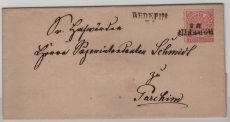 REDEFIN
Sr. Hochwürden
Herrn Superintendent Schmidt
zu
Parchim